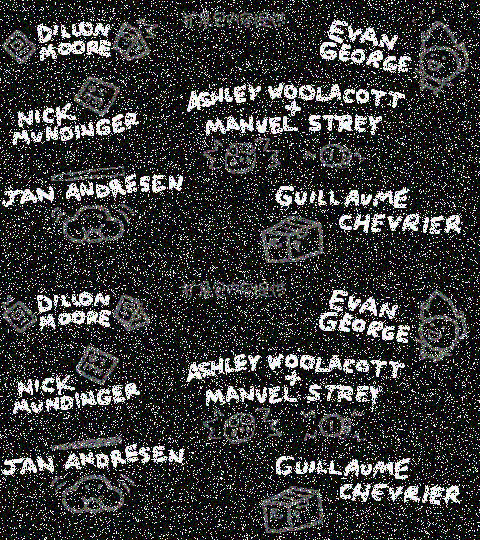 DILLON
MOORE
EVAN
GEORGE
NICK
MUNDINGER
ASHLEY WOOLACOTT
+
MANUEL STREY
JAN ANDRESEN
GUILLAUME
CHEVRIER
DILLON
MOORE
EVAN
GEORGE
NICK
MUNDINGER
ASHLEY WOOLACOTT
+
MANUEL STREY
JAN ANDRESEN
GUILLAUME
CHEVRIER